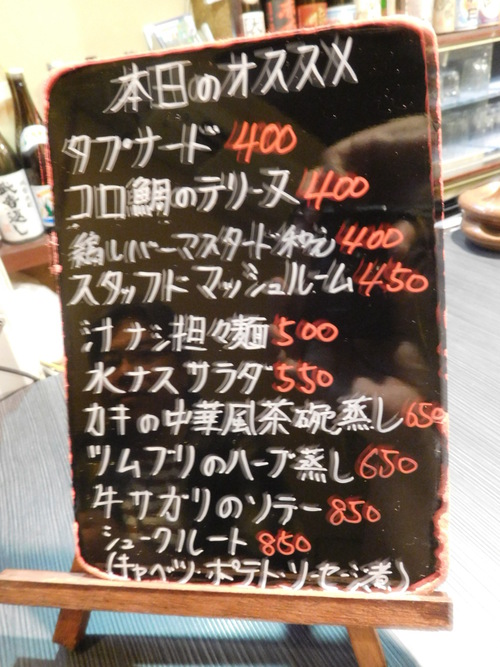 本日のオススメ
タプナード 400
コロ鯛のテリーヌ 400
鶏レバーマスタード和え 400
スタッフドマッシュルーム 450
汁ナシ担々麺 500
水ナスサラダ 550
カキの中華風茶碗蒸し 650
ツムブリのハーブ蒸し 650
牛サガリのソテー 850
シュークルート 850
(キャベツ・ポテト・ソーセージ煮)